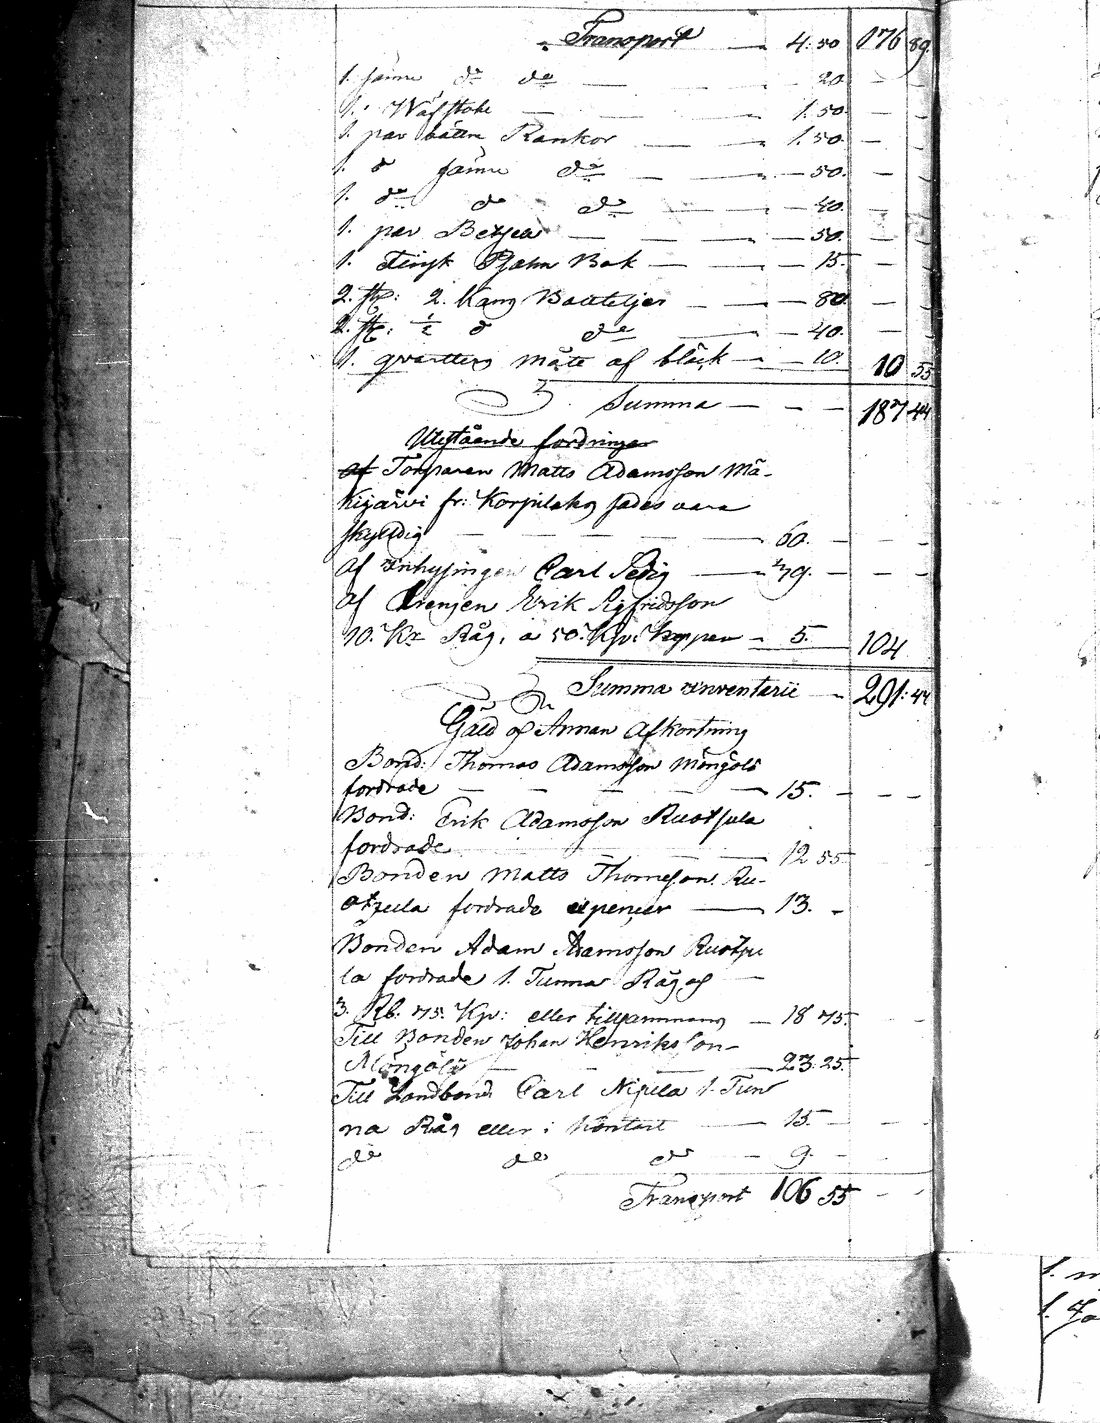 Transport — 4. 50 176 89.
1. sämre do do — 20. —
1. Wäfstol — 1. 50. —
1. par bättre Rankor — 1. 50. —
1. d sämre do — 50. —
1. do do do — 40. —
1. par Betsel — 50. —
1. Finsk Psalm Bok — 15. —
2. st: 2. Kans Bouteljer — 80. —
2. st: ½ d do — 40. —
1. qvarters mått af bläck — 10. 10 55
Summa — 187 44
Utestående fordringar
af Torparen Matts Adamsson Mä-
kijärvi fr: Korpilaks sades vara
skyldig — 60. —
af Inhysingen Carl Sedig — 39. —
af Drengen Erik Sigfridsson
10. Kr Råg, a 50. Kp: Kappen — 5. 104
Summa Inventarii — 291. 44
Gäld och Annan Afkortning
Bond: Thomas Adamsson Möngölä
fordrade — 15. —
Bond: Erik Adamsson Ruotsula
fordrade — 12 55
Bonden Matts Thomsson Ru-
otsula fordrade — 13. —
Bonden Adam Adamsson Ruotsu
la fordrade 1. Tunna Råg och
3. Rb. 75. Kp: eller tillsammans — 18 75.
Till Bonden Johan Henriksson
Möngölä — 23. 25.
Till Landbond Carl Nipula 1. Tun
na Råg eller i Kontant — 15 —
do do do — 9. —
Transport 106 55 —
1.
1.